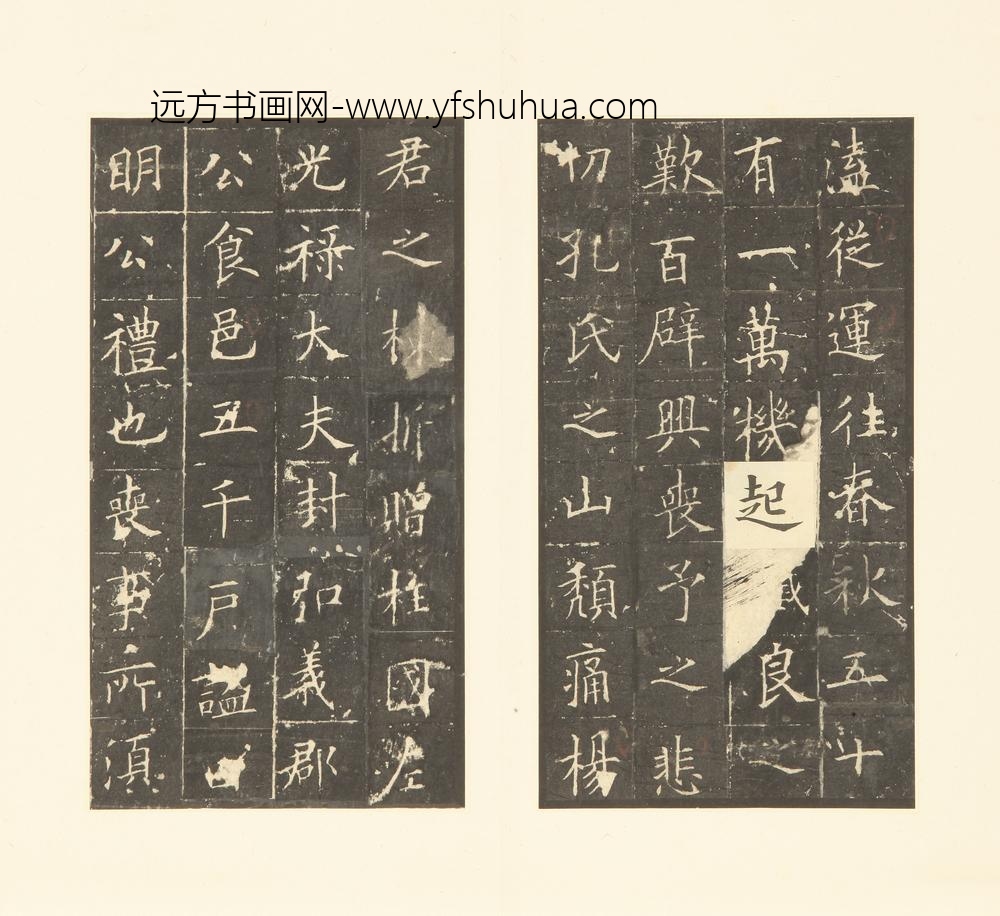 远方书画网-www.yfshuhua.com
溘從運往春秋五十
有一萬機起戚良之
歎百辟興喪予之悲
切孔氏之山頹痛楊
君之林折贈柱國左
光祿大夫封弘義郡
公食邑五千戶諡曰
明公禮也喪事所須